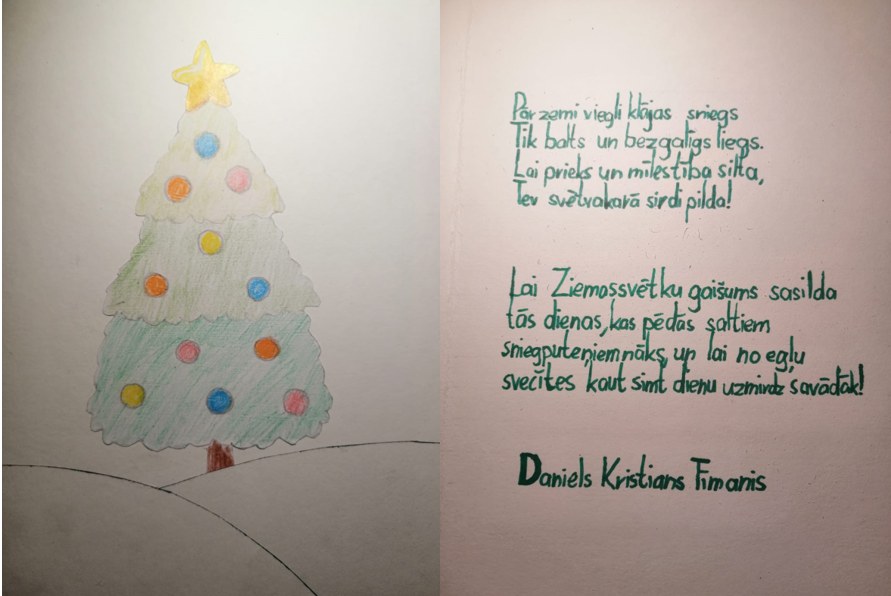 Pār zemi viegli klājas sniegs
Tik balts un bezgalīgs liegs.
Lai prieks un mīlestība silta,
Tev svētvakarā sirdi pilda!
Lai Ziemassvētku gaišums sasilda
tās dienas, kas pēdās saltiem
sniegputeņiem nāks, un lai no egļu
svecītes kaut simt dienu uzmirdz savādāk!
Daniels Kristians Timanis